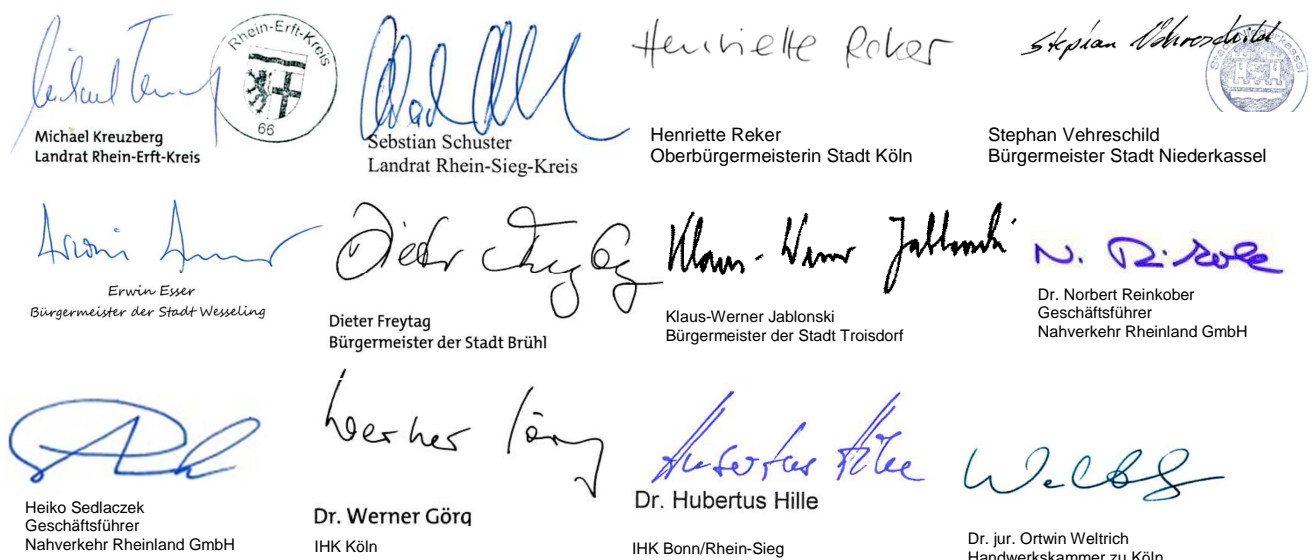 Rhein-Erft-Kreis
66
Henriette Reker
Stephan Vehreschild
Michael Kreuzberg
Landrat Rhein-Erft-Kreis
Sebstian Schuster
Landrat Rhein-Sieg-Kreis
Henriette Reker
Oberbürgermeisterin Stadt Köln
Stephan Vehreschild
Bürgermeister Stadt Niederkassel
Erwin Esser
Bürgermeister der Stadt Wesseling
Dieter Freytag
Dieter Freytag
Bürgermeister der Stadt Brühl
Klaus-Werner Jablonski
Klaus-Werner Jablonski
Bürgermeister der Stadt Troisdorf
Dr. Norbert Reinkober
Geschäftsführer
Nahverkehr Rheinland GmbH
Heiko Sedlaczek
Geschäftsführer
Nahverkehr Rheinland GmbH
Werner Görg
Dr. Werner Görg
IHK Köln
Hubertus Hille
Dr. Hubertus Hille
IHK Bonn/Rhein-Sieg
Dr. jur. Ortwin Weltrich
Handwerkskammer zu Köln